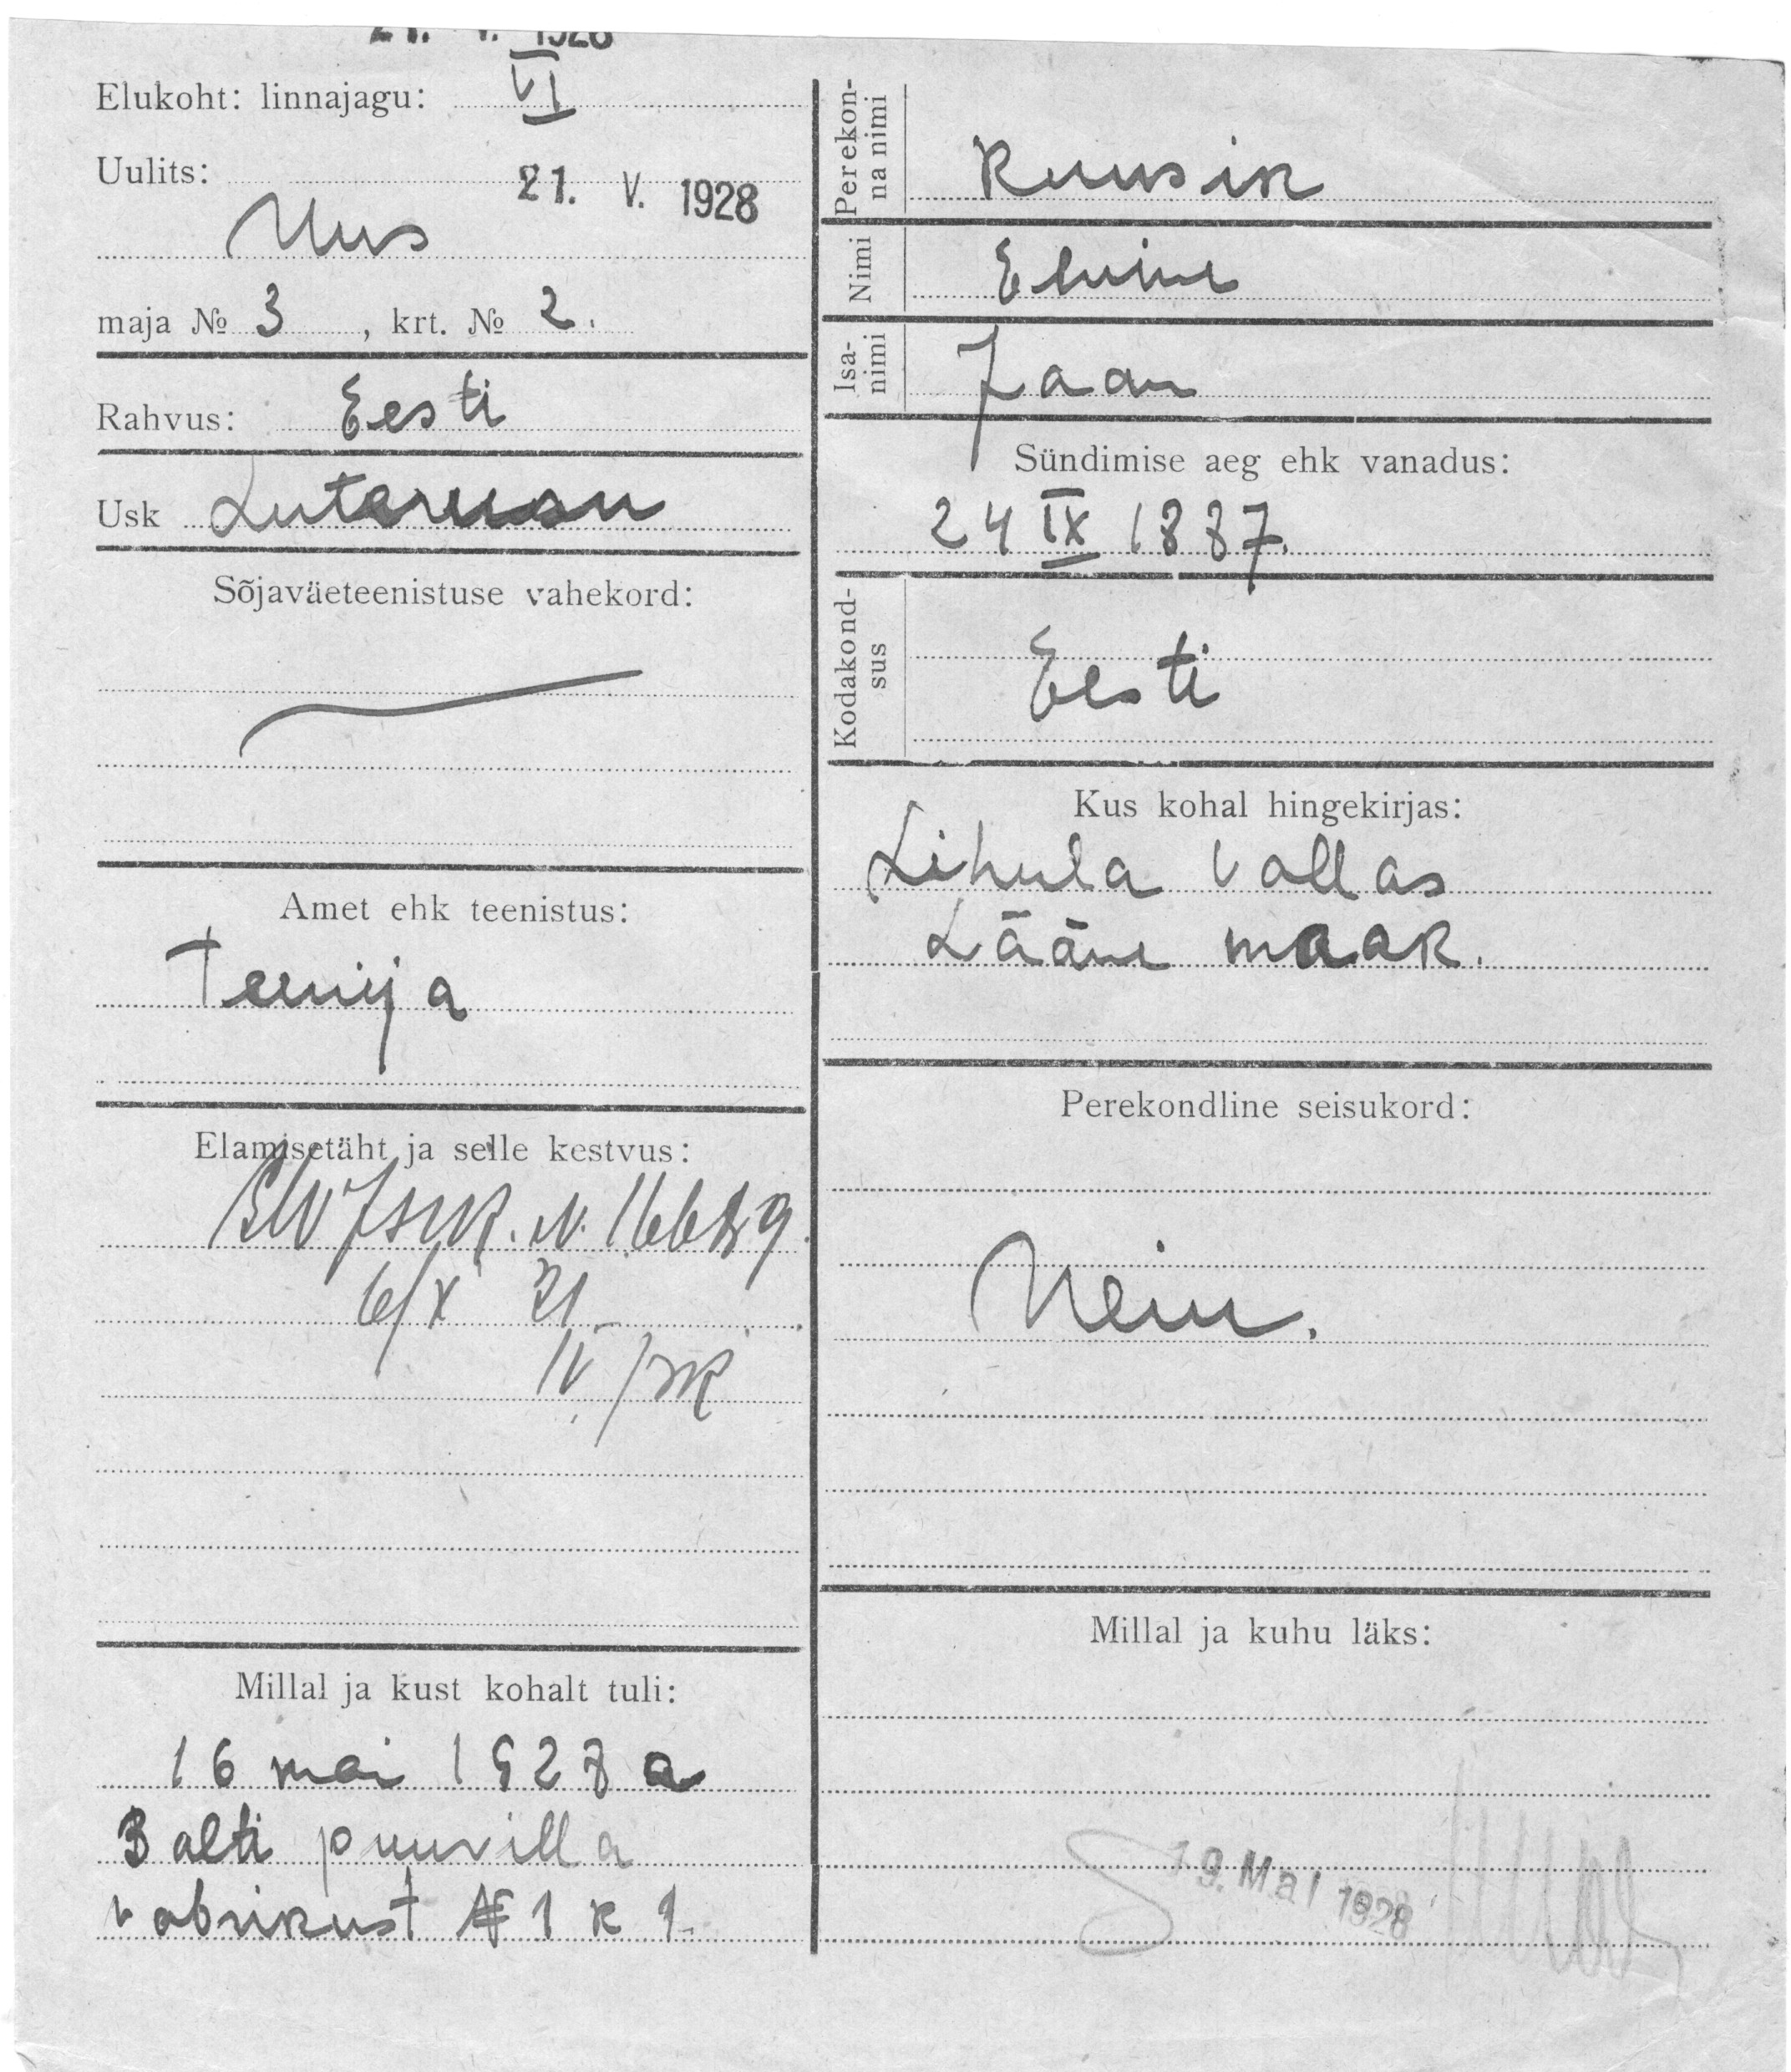 21. V. 1928
Elukoht: linnajagu: VI
Uulits: 21. V. 1928
Uus
maja № 3, krt. № 2.
Rahvus: Eesti
Usk Luterusu
Sõjaväeteenistuse vahekord:
Amet ehk teenistus:
Teenija
Elamisetäht ja selle kestvus:
N. 16689
6/X 21
IV
Millal ja kust kohalt tuli:
16 mai 1928 a
Balti puuvilla
vabrikust № 1 k 1.
Perekonna nimi
Ruusik
Nimi
Isanimi Jaan
Sündimise aeg ehk vanadus:
24 IX 1887.
Kodakondsus
Eesti
Kus kohal hingekirjas:
Lihula vallas
Lääne maak.
Perekondline seisukord:
Neiu.
Millal ja kuhu läks:
19. Mai 1928